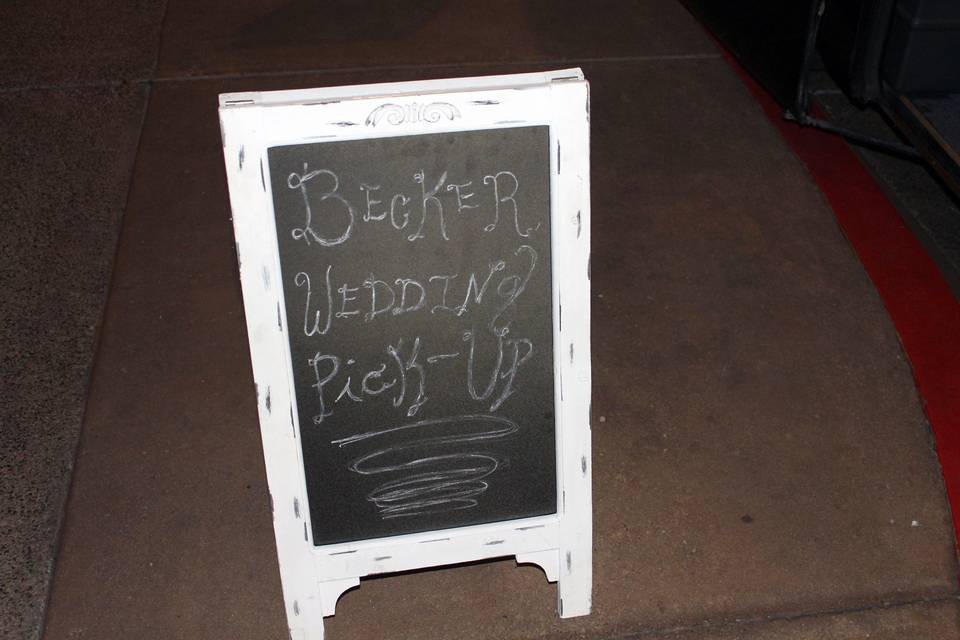 BECKER
WEDDING
PicK-UP